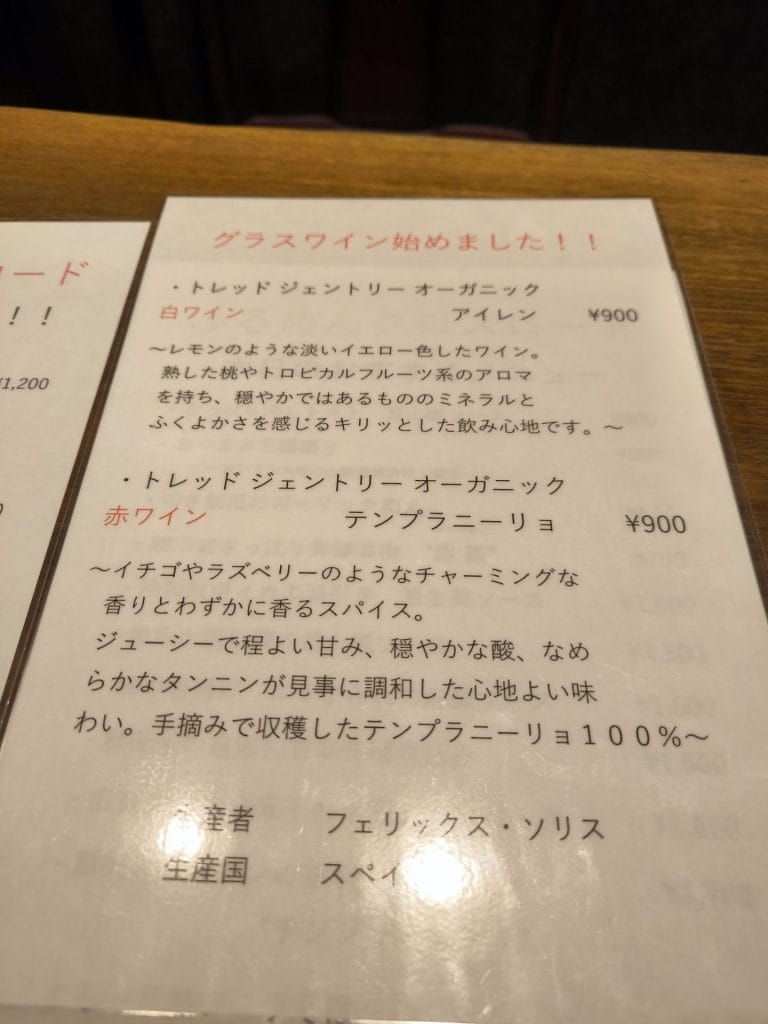 グラスワイン始めました！！
・トレッド ジェントリー オーガニック
白ワイン アイレン ¥900
～レモンのような淡いイエロー色したワイン。
熟した桃やトロピカルフルーツ系のアロマ
を持ち、穏やかではあるもののミネラルと
ふくよかさを感じるキリッとした飲み心地です。～
・トレッド ジェントリー オーガニック
赤ワイン テンプラニーリョ ¥900
～イチゴやラズベリーのようなチャーミングな
香りとわずかに香るスパイス。
ジューシーで程よい甘み、穏やかな酸、なめ
らかなタンニンが見事に調和した心地よい味
わい。手摘みで収穫したテンプラニーリョ１００％～
生産者 フェリックス・ソリス
生産国 スペイ
ード
！！
¥1,200